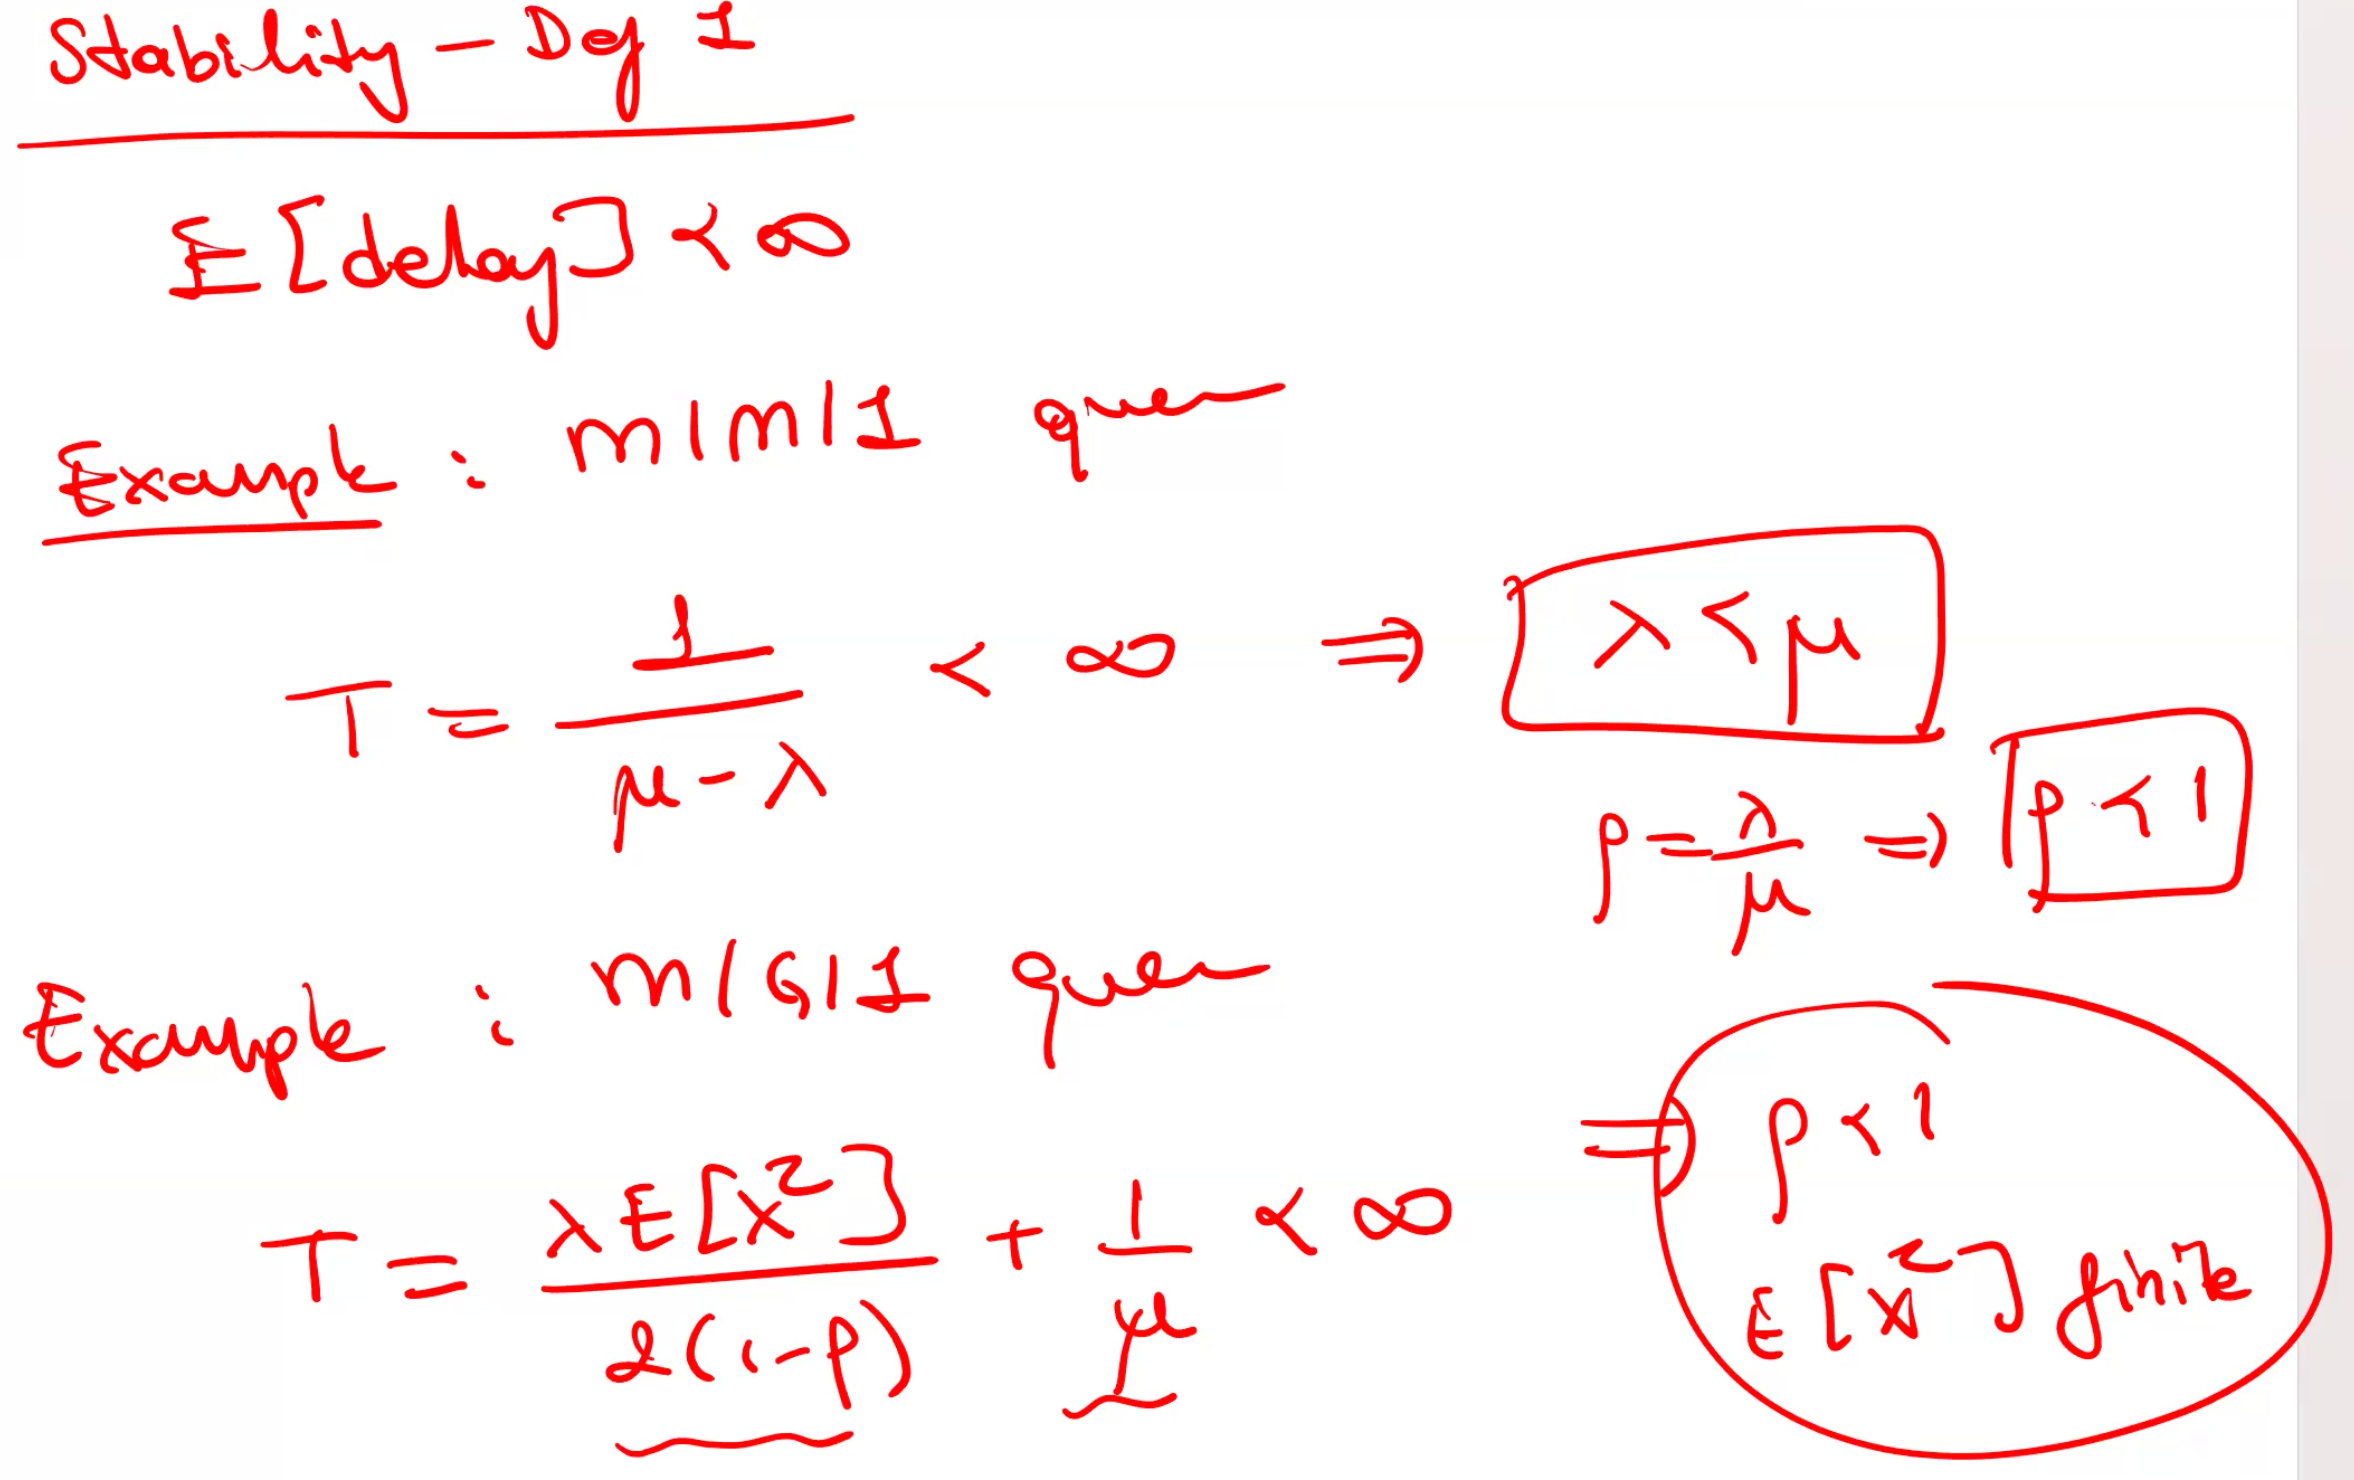 Stability - Def 1
E[delay] < ∞
Example : M|M|1 queue
T = 1/(μ-λ) < ∞ ⇒ λ < μ
ρ = λ/μ ⇒ ρ < 1
Example : M|G|1 queue
T = λE[X²]/2(1-ρ) + 1/μ < ∞ ⇒ ρ < 1
E[X²] finite